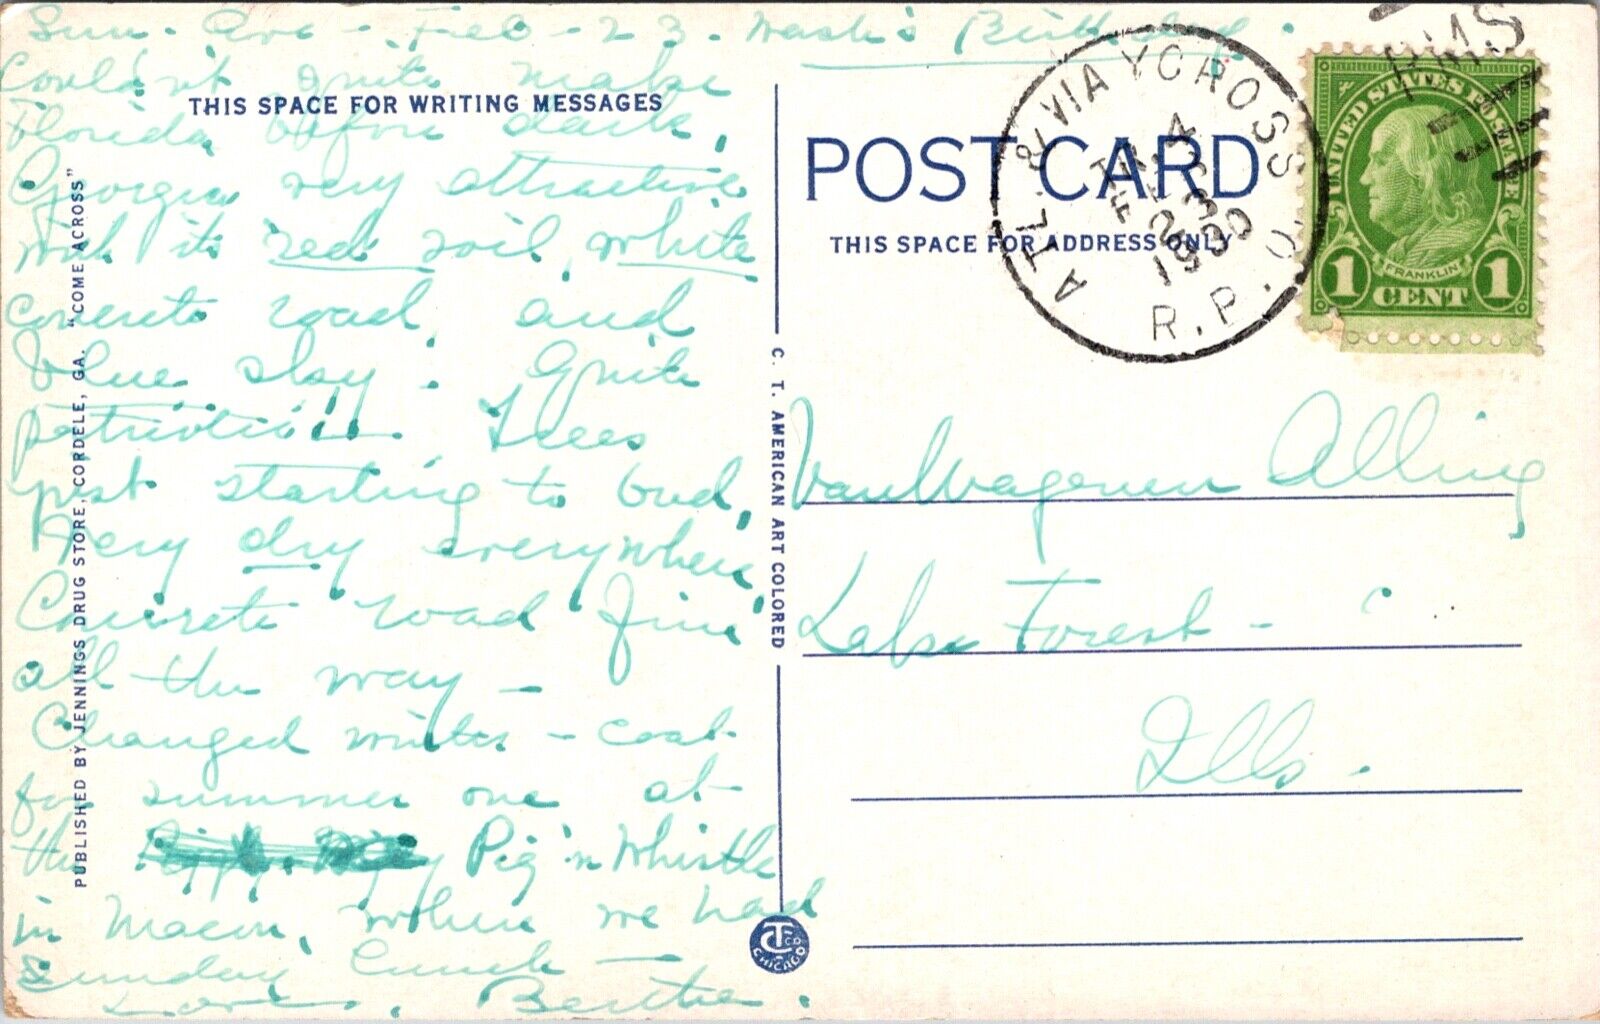 Sun. Eve - Feb - 23. Wash's Birthday.
Couldn't quite make
Florida before dark.
Georgia very attractive
with its red soil, white
concrete road, and
blue sky. Quite
patriotic. Trees
just starting to bud.
Very dry everywhere.
Concrete road fine
all the way -
Changed winter - coat
for summer one at
the Pig 'n Whistle
in Macon, where we had
Sunday lunch -
Love, Berthe.
THIS SPACE FOR WRITING MESSAGES
PUBLISHED BY JENNINGS DRUG STORE, CORDELE, GA. "COME ACROSS"
C. T. AMERICAN ART COLORED
CT CO
CHICAGO
POST CARD
THIS SPACE FOR ADDRESS ONLY
ATL. & WAYCROSS
R.P.O.
TR 4
FEB
23
1930
RMS
UNITED STATES POSTAGE
FRANKLIN
1 CENT 1
Van Wagenen Alling
Lake Forest -
Ills.